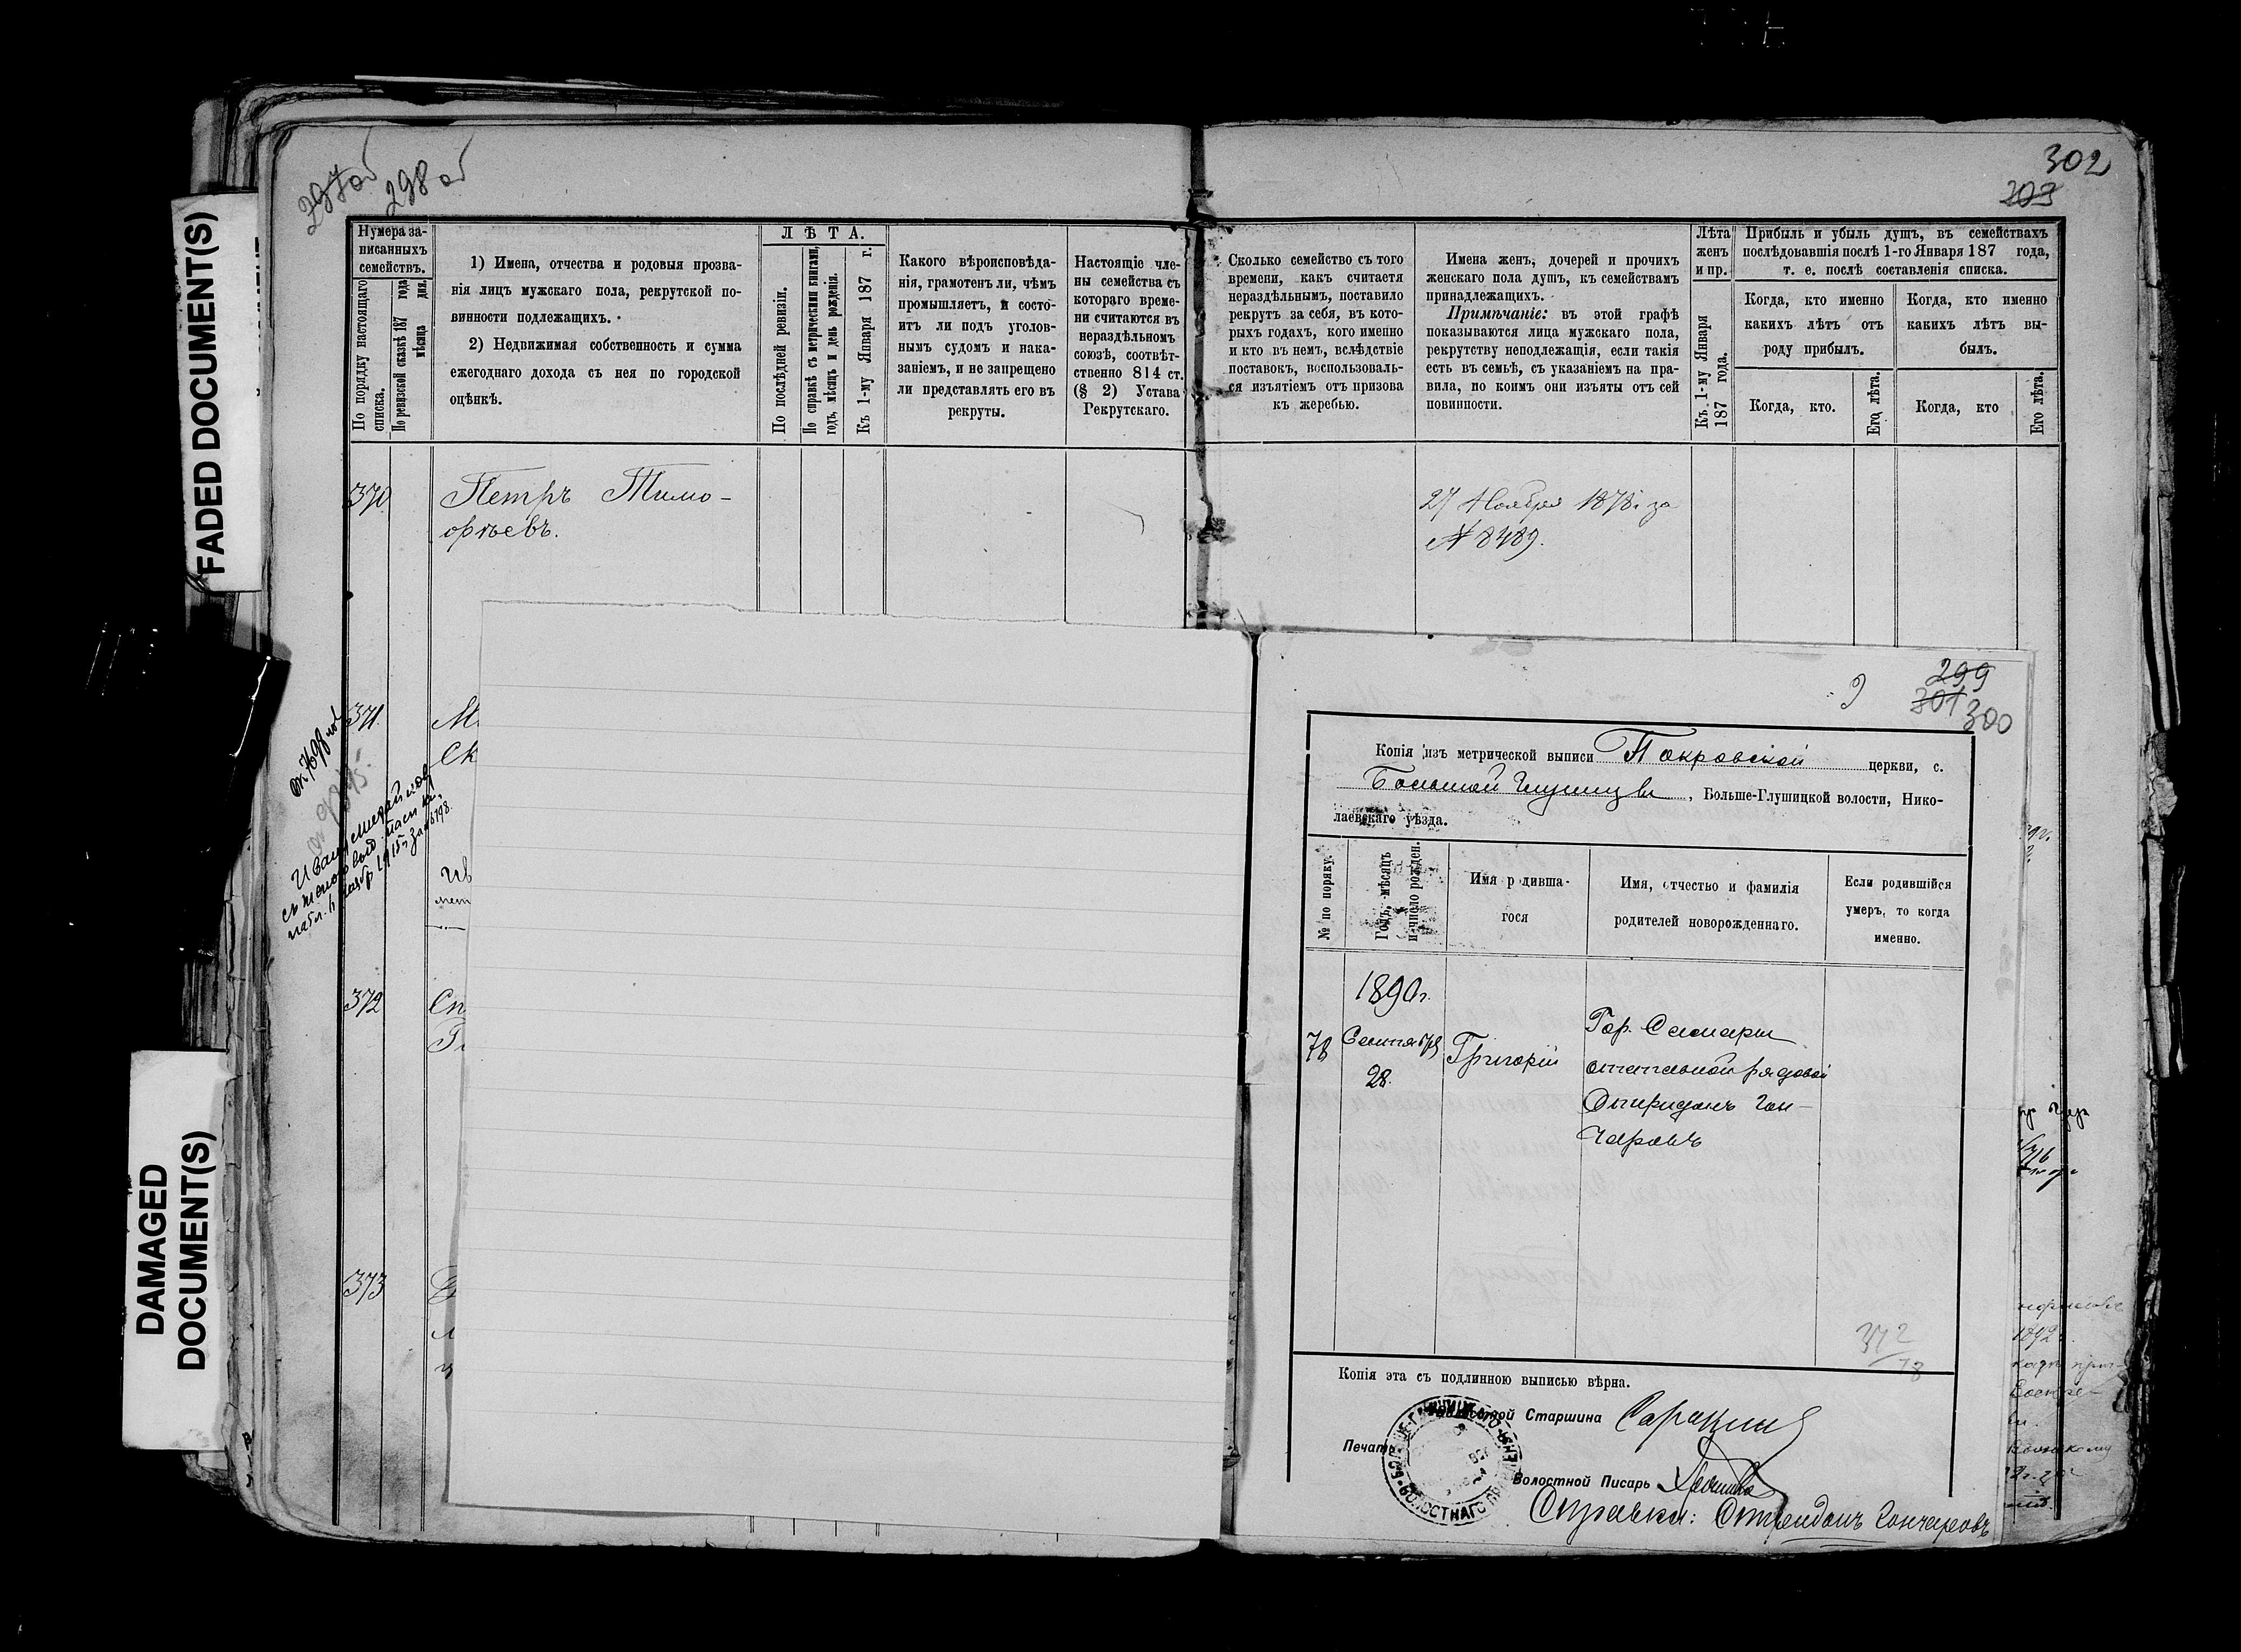 FADED DOCUMENT(S)
DAMAGED
DOCUMENT(S)
297 об
298 об
302
203
Нумера за-
писанныхъ
семействъ.
По порядку настоящаго
списка.
По ревизской сказкѣ 187 года
мѣсяца дня.
1) Имена, отчества и родовыя прозва-
нія лицъ мужскаго пола, рекрутской по-
винности подлежащихъ.
2) Недвижимая собственность и сумма
ежегоднаго дохода съ нея по городской
оцѣнкѣ.
ЛѢТА.
По послѣдней ревизіи.
По справкѣ съ метрическими книгами,
годъ, мѣсяцъ и день рожденія.
Къ 1-му Января 187 г.
Какого вѣроисповѣда-
нія, грамотенъ ли, чѣмъ
промышляетъ, и состо-
итъ ли подъ уголов-
нымъ судомъ и нака-
заніемъ, и не запрещено
ли представлять его въ
рекруты.
Настоящіе чле-
ны семейства съ
котораго време-
ни считаются въ
нераздѣльномъ
союзѣ, соотвѣт-
ственно 814 ст.
(§ 2) Устава
Рекрутскаго.
Сколько семейство съ того
времени, какъ считаетя
нераздѣльнымъ, поставило
рекрутъ за себя, въ кото-
рыхъ годахъ, кого именно
и кто въ немъ, вслѣдствіе
поставокъ, воспользовал-
ся изъятіемъ отъ призова
къ жеребью.
Имена женъ, дочерей и прочихъ
женскаго пола душъ, къ семействамъ
принадлежащихъ.
Примѣчаніе: въ этой графѣ
показываются лица мужскаго пола,
рекрутству неподлежащія, если такія
есть въ семьѣ, съ указаніемъ на пра-
вила, по коимъ они изъяты отъ сей
повинности.
Лѣта
женъ
и пр.
Къ 1-му Января
187 года.
Прибыль и убыль душъ, въ семействахъ
послѣдовавшія послѣ 1-го Января 187 года,
т. е. послѣ составленія списка.
Когда, кто именно
какихъ лѣтъ отъ
роду прибылъ.
Когда, кто именно
какихъ лѣтъ вы-
былъ.
Когда, кто.
Его лѣта.
Когда, кто
Его лѣта.
370
Петръ Тимо-
фѣевъ.
27 Ноября 1878 г за
№ 8489.
371.
372
373
299
301
300
Копія изъ метрической выписи Покровской церкви, с.
Большой Глушицы, Больше-Глушицкой волости, Нико-
лаевскаго уѣзда.
№ по поряку.
Годъ, мѣсяцъ
и число рожден.
Имя родивша-
гося
Имя, отчество и фамилія
родителей новорожденнаго.
Если родившійся
умеръ, то когда
именно.
1890 г.
78
Сентября
28.
Григорій
Гор. Самары
отставной рядовой
Спиридонъ Гон-
чаровъ
372
78
Копія эта съ подлинною выписью вѣрна.
Волостной Старшина
Печать
Волостной Писарь
Справка: Спиридонъ Гончаровъ